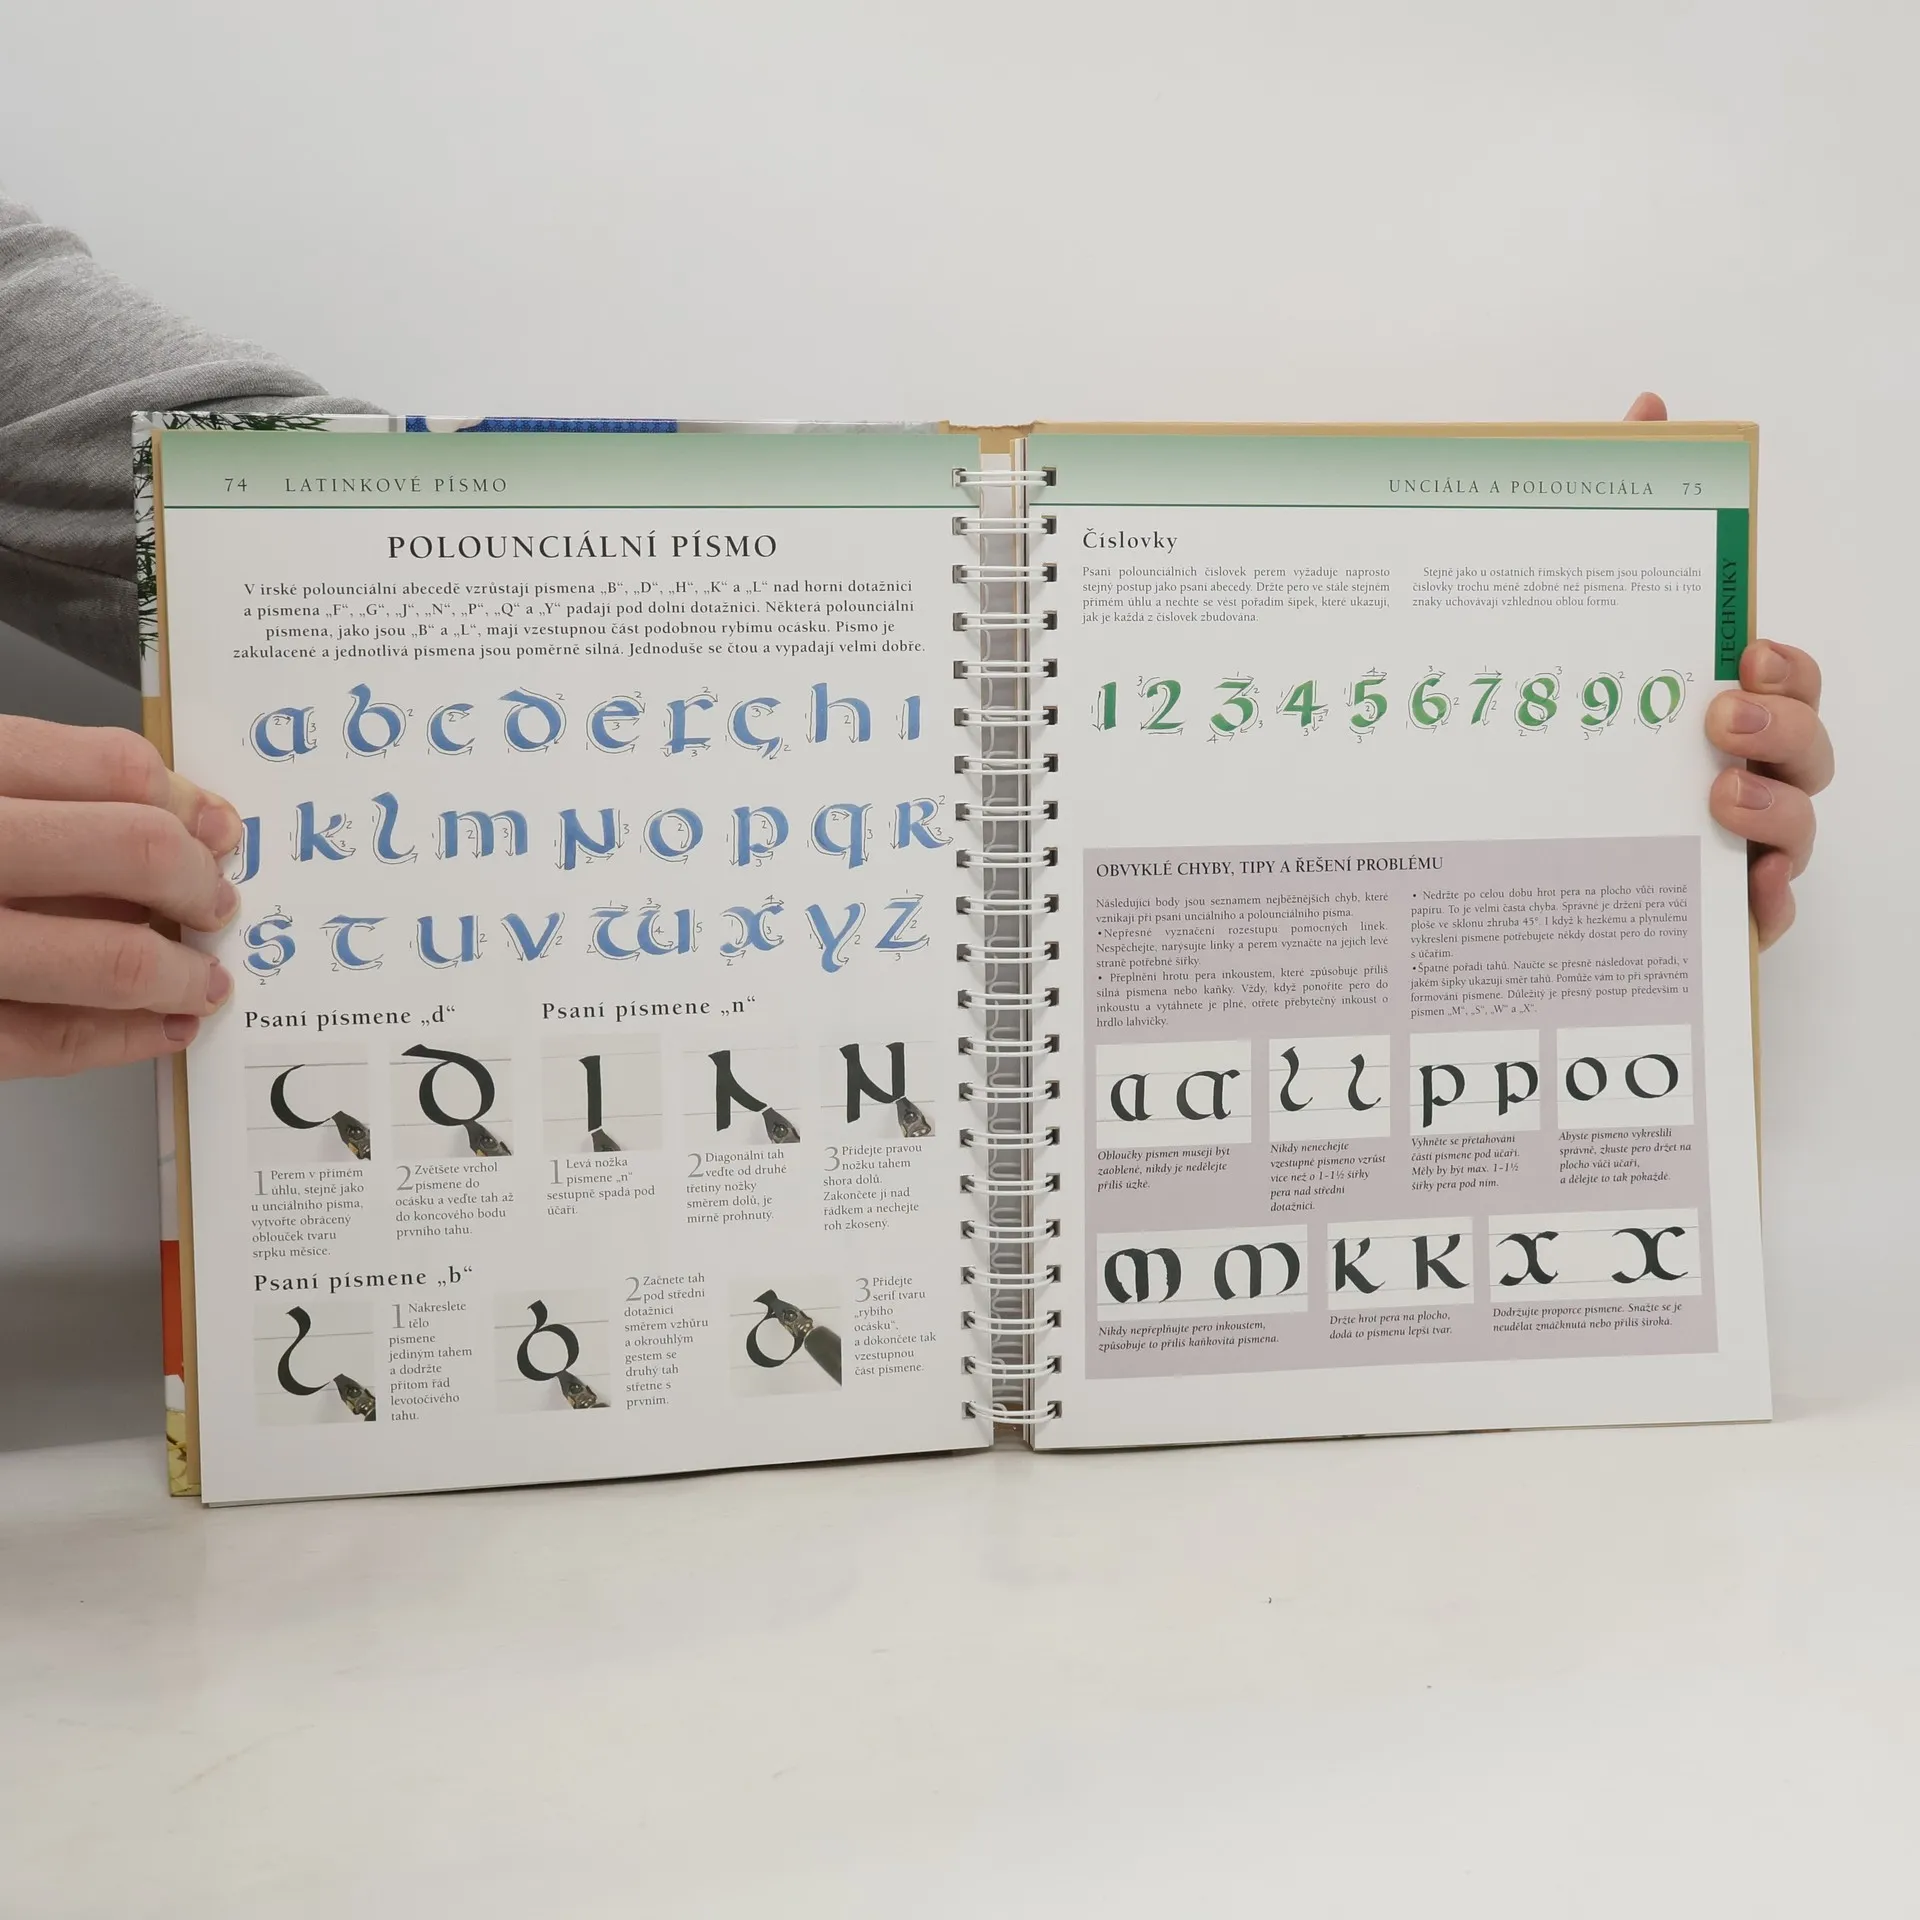 74 LATINKOVÉ PÍSMO
POLOUNCIÁLNÍ PÍSMO
V irské polounciální abecedě vzrůstají písmena „B“, „D“, „H“, „K“ a „L“ nad horní dotažnici
a písmena „F“, „G“, „J“, „N“, „P“, „Q“ a „Y“ padají pod dolní dotažnicí. Některá polounciální
písmena, jako jsou „B“ a „L“, mají vzestupnou část podobnou rybímu ocásku. Písmo je
zakulacené a jednotlivá písmena jsou poměrně silná. Jednoduše se čtou a vypadají velmi dobře.
a b c d e f g h i
j k l m n o p q r
s t u v w x y z
Psaní písmene „d“
1 Perem v přímém
úhlu, stejně jako
u unciálního písma,
vytvořte obrácený
oblouček tvaru
srpku měsíce.
2 Zvětšete vrchol
písmene do
ocásku a veďte tah až
do koncového bodu
prvního tahu.
Psaní písmene „n“
1 Levá nožka
písmene „n“
sestupně spadá pod
účaří.
2 Diagonální tah
veďte od druhé
třetiny nožky
směrem dolů, je
mírně prohnutý.
3 Přidejte pravou
nožku tahem
shora dolů.
Zakončete ji nad
řádkem a nechejte
roh zkosený.
Psaní písmene „b“
1 Nakreslete
tělo
písmene
jediným tahem
a dodržte
přitom řád
levotočivého
tahu.
2 Začnete tah
pod střední
dotažnicí
směrem vzhůru
a okrouhlým
gestem se
druhý tah
střetne s
prvním.
3 Přidejte
serif tvaru
„rybího
ocásku“,
a dokončete tak
vzestupnou
část písmene.
UNCIÁLA A POLOUNCIÁLA 75
TECHNIKY
Číslovky
Psaní polounciálních číslovek perem vyžaduje naprosto
stejný postup jako psaní abecedy. Držte pero ve stále stejném
přímém úhlu a nechte se vést pořadím šipek, které ukazují,
jak je každá z číslovek zbudována.
Stejně jako u ostatních římských písem jsou polounciální
číslovky trochu méně zdobné než písmena. Přesto si i tyto
znaky uchovávají vzhlednou oblou formu.
1 2 3 4 5 6 7 8 9 0
OBVYKLÉ CHYBY, TIPY A ŘEŠENÍ PROBLÉMU
Následující body jsou seznamem nejběžnějších chyb, které
vznikají při psaní unciálního a polounciálního písma.
•Nepřesné vyznačení rozestupu pomocných linek.
Nespěchejte, narýsujte linky a perem vyznačte na jejich levé
straně potřebné šířky.
• Přeplnění hrotu pera inkoustem, které způsobuje příliš
silná písmena nebo kaňky. Vždy, když ponoříte pero do
inkoustu a vytáhnete je plné, otřete přebytečný inkoust o
hrdlo lahvičky.
• Nedržte po celou dobu hrot pera na plocho vůči rovině
papíru. To je velmi častá chyba. Správné je držení pera vůči
ploše ve sklonu zhruba 45°. I když k hezkému a plynulému
vykreslení písmene potřebujete někdy dostat pero do roviny
s účařím.
•Špatné pořadí tahů. Naučte se přesně následovat pořadí, v
jakém šipky ukazují směr tahů. Pomůže vám to při správném
formování písmene. Důležitý je přesný postup především u
písmen „M“, „S“, „W“ a „X“.
a a l l p p o o
Obloučky písmen musejí být
zaoblené, nikdy je nedělejte
příliš úzké.
Nikdy nenechejte
vzestupné písmeno vzrůst
více než o 1-1½ šířky
pera nad střední
dotažnici.
Vyhněte se přetahování
částí písmene pod účaří.
Měly by být max. 1-1½
šířky pera pod ním.
Abyste písmeno vykreslili
správně, zkuste pero držet na
plocho vůči účaří,
a dělejte to tak pokaždé.
m m k k x x
Nikdy nepřeplňujte pero inkoustem,
způsobuje to příliš kaňkovitá písmena.
Držte hrot pera na plocho,
dodá to písmenu lepší tvar.
Dodržujte proporce písmene. Snažte se je
neudělat zmáčknutá nebo příliš široká.